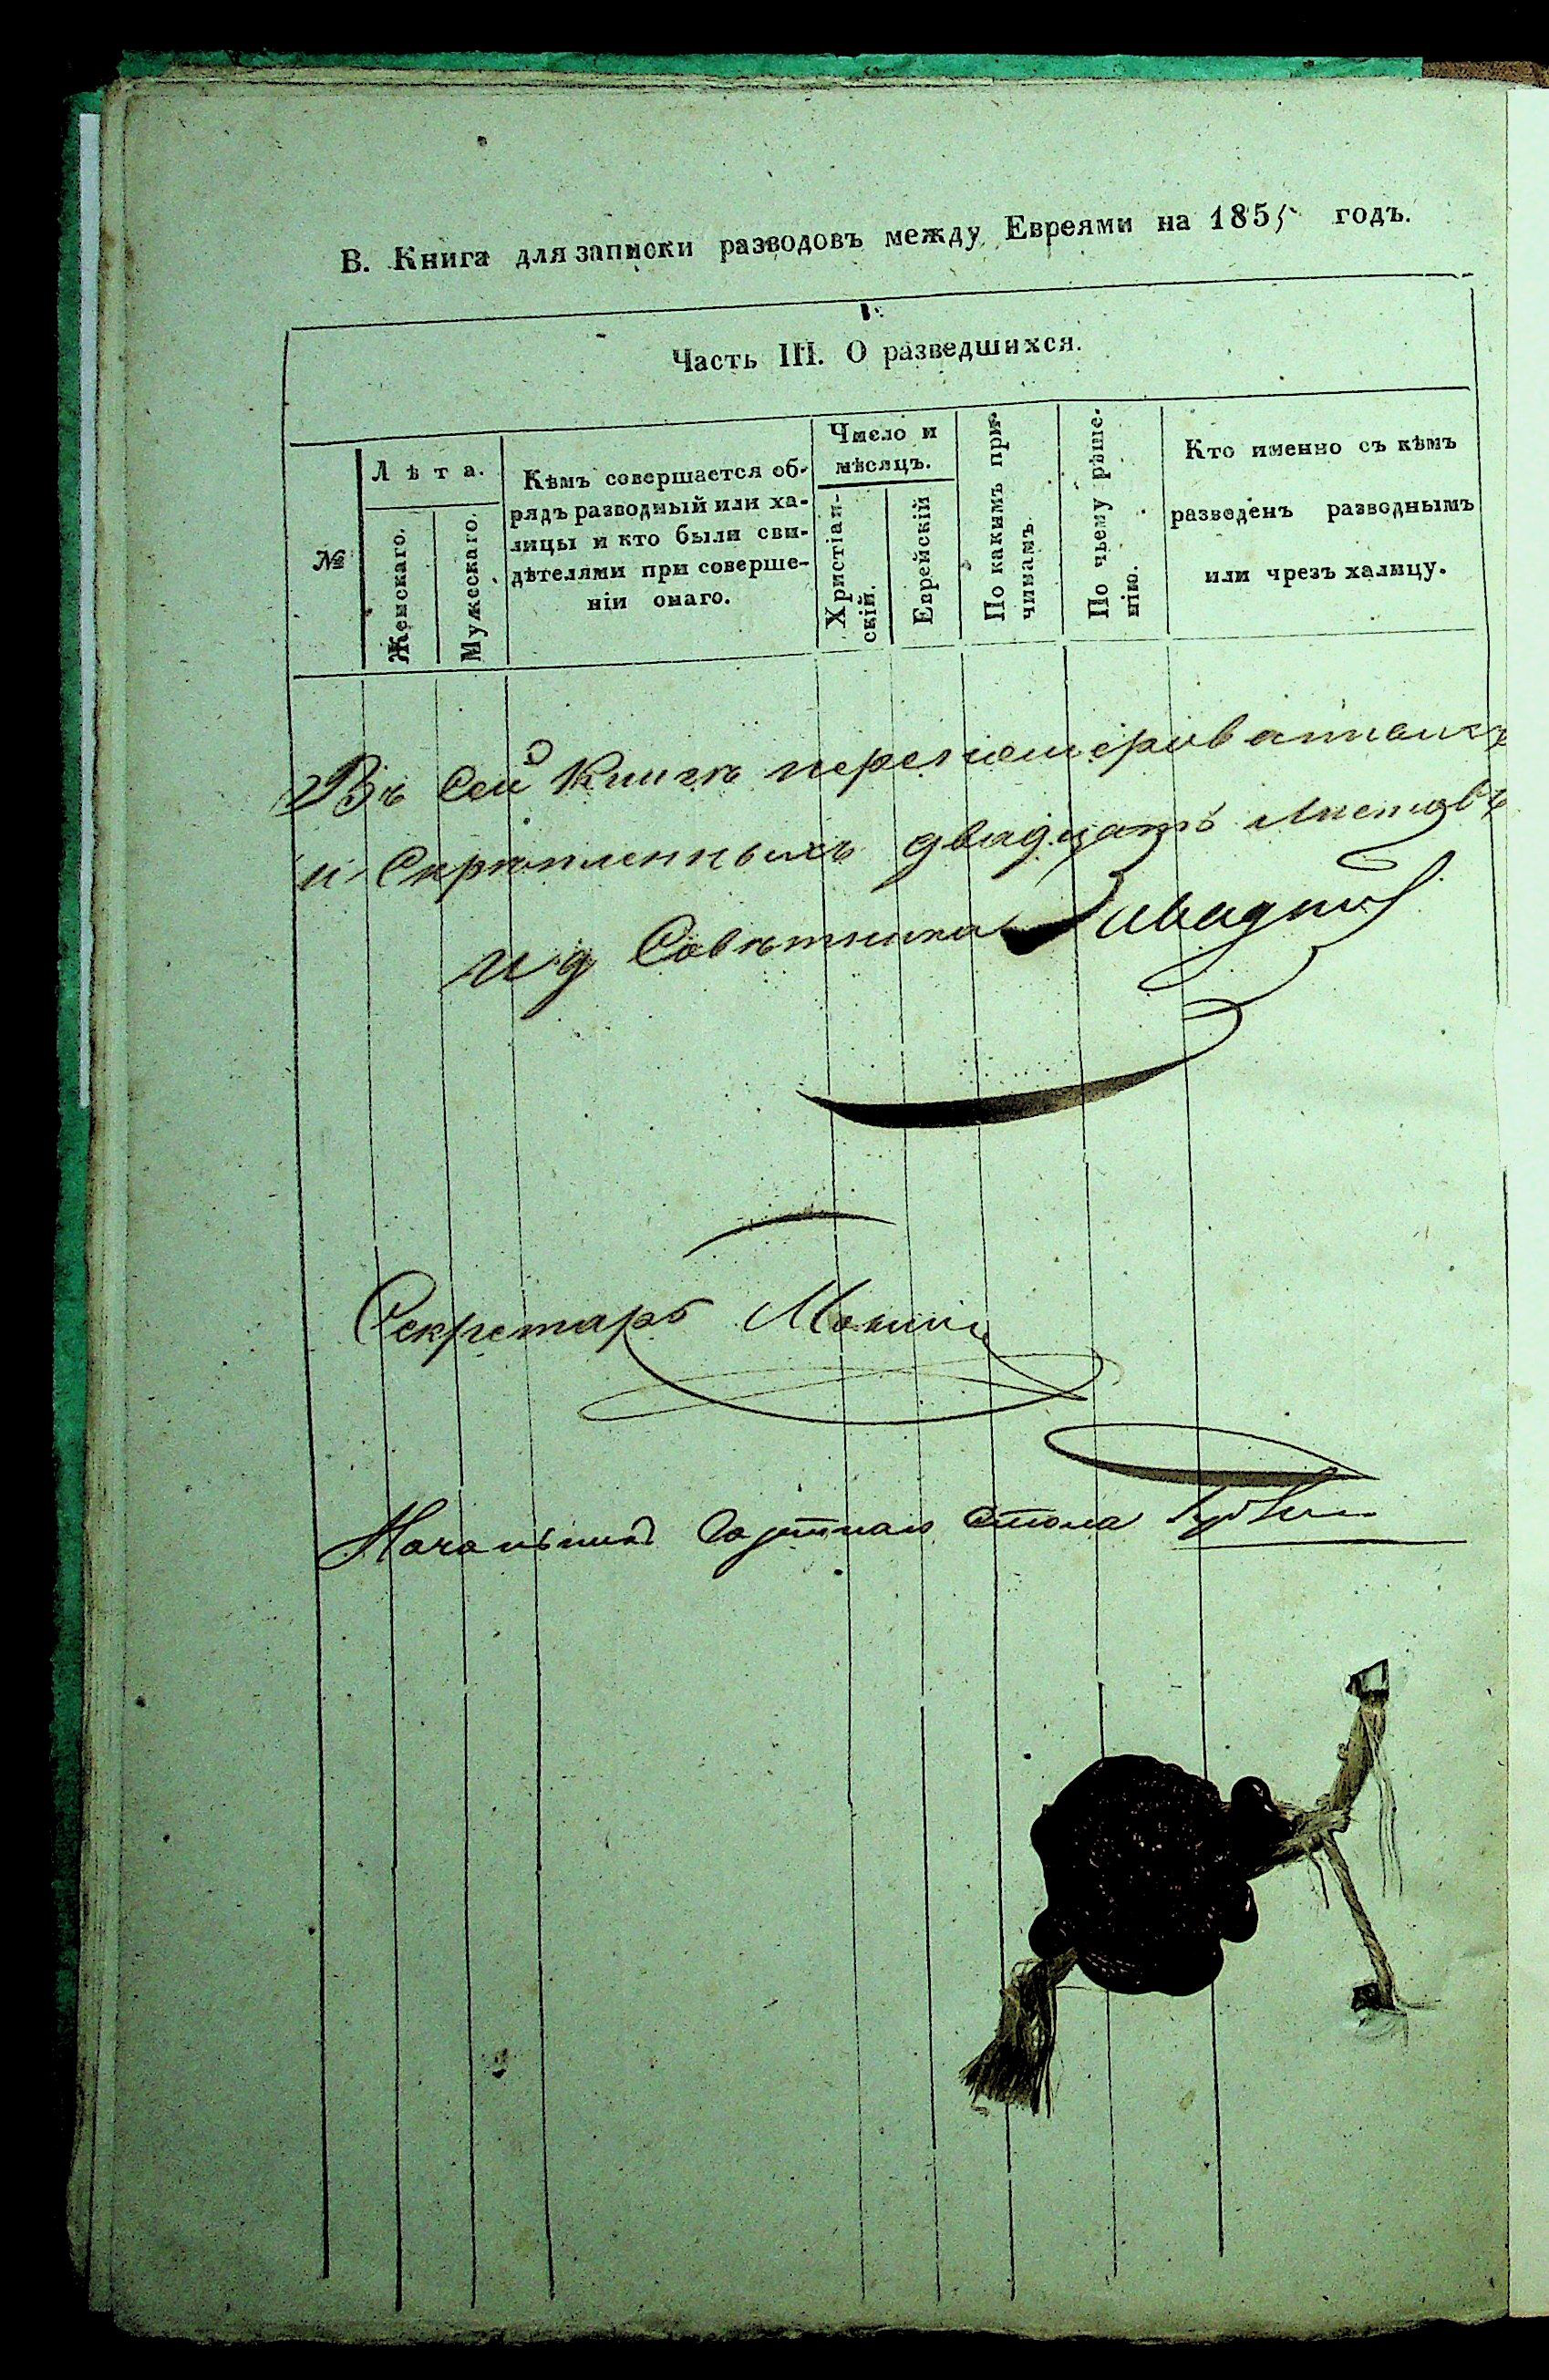 В. Книга для записки разводовъ между Евреями на 1855 годъ.
Часть III. О разведшихся.
№
Лѣта.
Женскаго.
Мужескаго.
Кѣмъ совершается об-
рядъ разводный или ха-
лицы и кто были сви-
дѣтелями при соверше-
ніи онаго.
Число и
мѣсяцъ.
Христіан-
скій.
Еврейскій
По какимъ при-
чинамъ.
По чьему рѣше-
нію.
Кто именно съ кѣмъ
разведенъ разводнымъ
или чрезъ халицу.
Въ сей Книгѣ перенумерованныхъ
и Скрѣпленныхъ двадцать Листовъ
И д Совѣтника
Секретарь
Начальникъ Стола